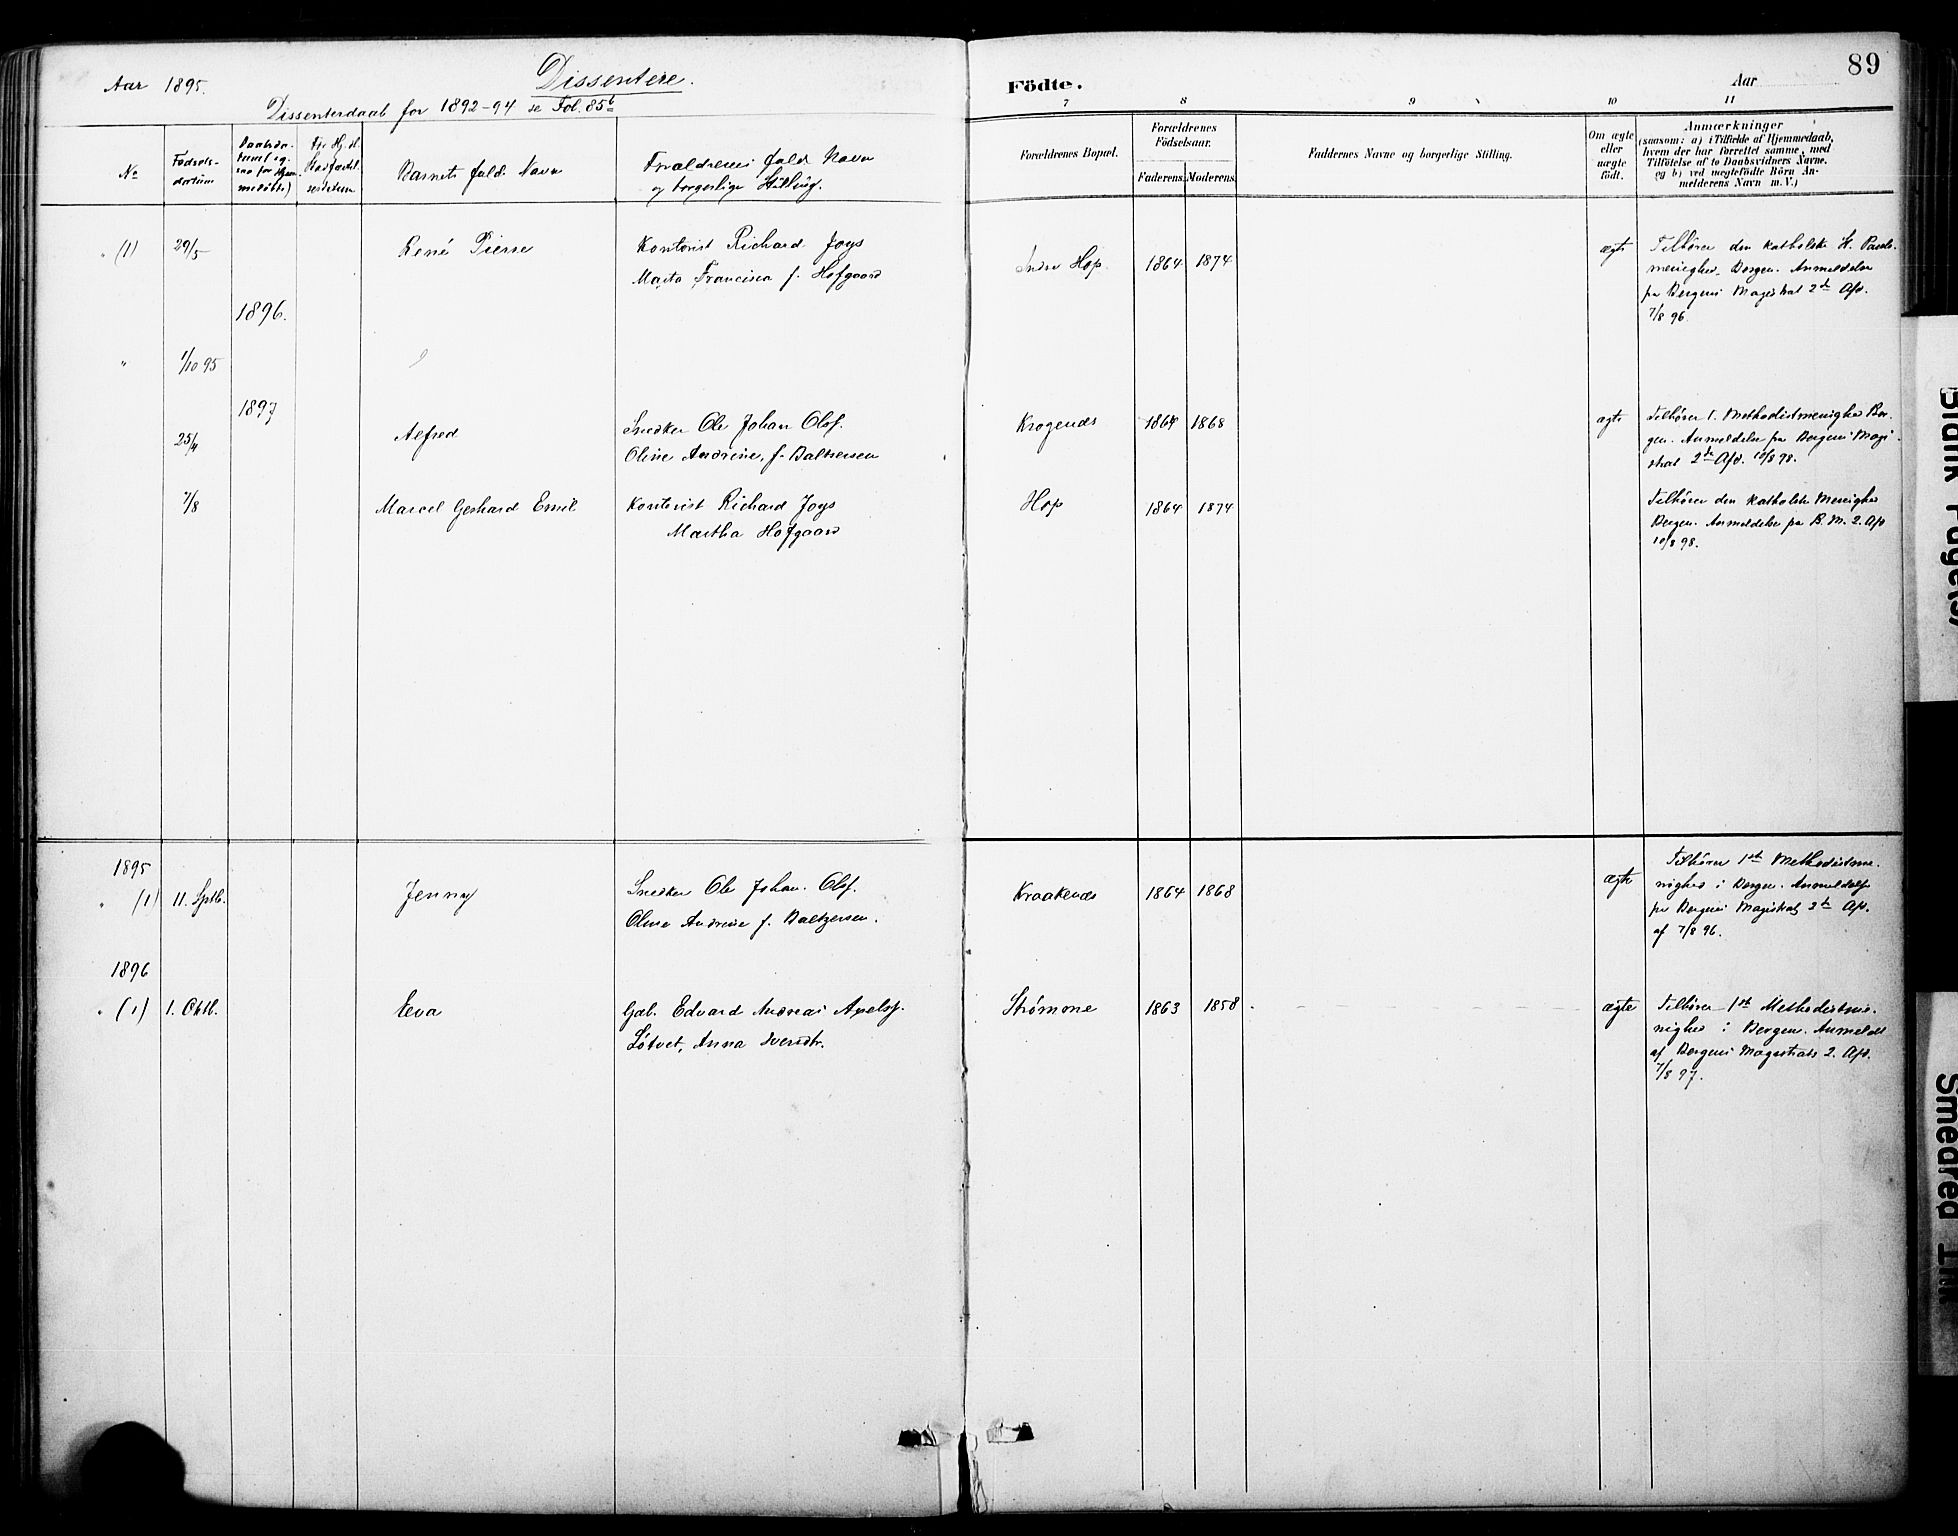 Aar 1895.
Dissentere.
Dissenterdaab for 1892-94 se Fol. 85b
No
Fødsels-
datum
Barnets fulde Navn
Forældrenes fulde Navn
og borgerlige Stilling.
" (1) 29/5 René Pierre Kontorist Richard Joys
Marta Francisca f. Hofgaard
1896.
" 1/10 95
1897
25/4 Alfred Snedker Ole Johan Olsf.
Oline Andreine, f. Baltsersen
7/8 Marcel Gerhard Emil Kontorist Richard Joys
Martha Hofgaard
1895
" (1) 11. Sptb. Jenny Snedker Ole Johan Olsf.
Oline Andreine f. Baltzersen.
1896
" (1) 1. Oktb. Eva Gab. Edvard Andreas Axelsf.
Løtvet, Anna Iversdtr.
Födte.
Aar
89
7 8 9 10 11
Forældrenes Bopæl.
Forældrenes
Födselsaar.
Faderens. Moderens.
Faddernes Navne og borgerlige Stilling.
Om ægte
eller
uægte
födt.
Anmærkninger
(saasom: a) i Tilfælde af Hjemmedaab,
hvem der har forrettet samme, med
Tilföielse af to Daabsvidners Navne,
og b) ved uægtefödte Börn An-
melderens Navn m. V.)
Indre Hop. 1864 1874 ægte Tilhører den katholske St. Pauls
menighed, Bergen. Anmeldelse
fra Bergens Magistrat 2den Afd.
7/8 96.
Krogenes 1864 1868 ægte Tilhører 1. Methodistmenighed Ber-
gen. Anmeldelse fra Bergens Magi-
strat 2de Afd. 10/8 98.
Hop 1864 1874 Tilhører den katholske Menighed
Bergen. Anmeldelse fra B. M. 2. Afd
10/8 98.
Kraakenes 1864 1868 ægte Tilhører 1ste Methodistme-
nighed i Bergen. Anmeldelse
fra Bergens Magistrat 2de Afd.
af 7/8 96.
Strømme 1863 1858 ægte Tilhører 1ste Methodistme-
nighed i Bergen. Anmeldt
af Bergens Magistrats 2. Afd.
7/8 97.
Blank Page(s)
Smeared Ink